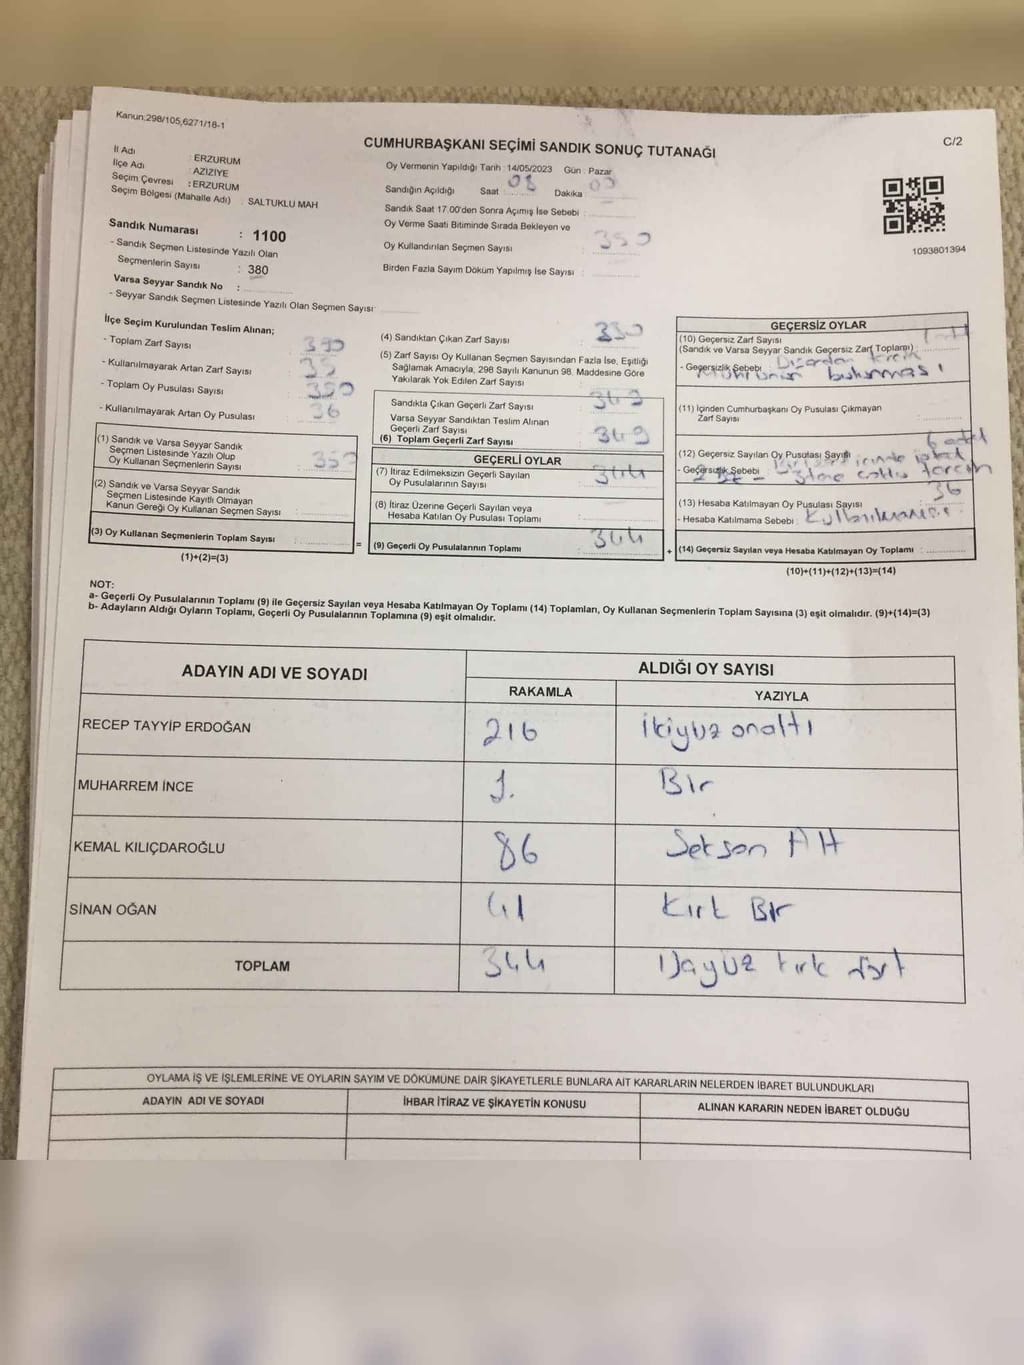 Kanun:298/105,6271/18-1
CUMHURBAŞKANI SEÇİMİ SANDIK SONUÇ TUTANAĞI
C/2
İl Adı : ERZURUM
İlçe Adı : AZIZIYE
Seçim Çevresi : ERZURUM
Seçim Bölgesi (Mahalle Adı) : SALTUKLU MAH
Oy Vermenin Yapıldığı Tarih : 14/05/2023 Gün : Pazar
Sandığın Açıldığı Saat : 08 Dakika : 00
Sandık Saat 17.00'den Sonra Açımış İse Sebebi :
Oy Verme Saati Bitiminde Sırada Bekleyen ve
Oy Kullandırılan Seçmen Sayısı : 350
Birden Fazla Sayım Döküm Yapılmış İse Sayısı :
1093801394
Sandık Numarası : 1100
- Sandık Seçmen Listesinde Yazılı Olan
Seçmenlerin Sayısı : 380
Varsa Seyyar Sandık No :
- Seyyar Sandık Seçmen Listesinde Yazılı Olan Seçmen Sayısı:
İlçe Seçim Kurulundan Teslim Alınan;
- Toplam Zarf Sayısı : 390
- Kullanılmayarak Artan Zarf Sayısı :
- Toplam Oy Pusulası Sayısı : 390
- Kullanılmayarak Artan Oy Pusulası : 36
(1) Sandık ve Varsa Seyyar Sandık
Seçmen Listesinde Yazılı Olup
Oy Kullanan Seçmenlerin Sayısı : 350
(2) Sandık ve Varsa Seyyar Sandık
Seçmen Listesinde Kayıtlı Olmayan
Kanun Gereği Oy Kullanan Seçmen Sayısı :
(3) Oy Kullanan Seçmenlerin Toplam Sayısı :
(1)+(2)=(3)
(4) Sandıktan Çıkan Zarf Sayısı : 350
(5) Zarf Sayısı Oy Kullanan Seçmen Sayısından Fazla İse, Eşitliği
Sağlamak Amacıyla, 298 Sayılı Kanunun 98. Maddesine Göre
Yakılarak Yok Edilen Zarf Sayısı :
Sandıkta Çıkan Geçerli Zarf Sayısı : 349
Varsa Seyyar Sandıktan Teslim Alınan
Geçerli Zarf Sayısı :
(6) Toplam Geçerli Zarf Sayısı : 349
GEÇERLİ OYLAR
(7) İtiraz Edilmeksizin Geçerli Sayılan
Oy Pusulalarının Sayısı : 344
(8) İtiraz Üzerine Geçerli Sayılan veya
Hesaba Katılan Oy Pusulası Toplamı :
= (9) Geçerli Oy Pusulalarının Toplamı : 344
GEÇERSİZ OYLAR
(10) Geçersiz Zarf Sayısı
(Sandık ve Varsa Seyyar Sandık Geçersiz Zarf Toplamı) :
- Geçersizlik Sebebi : Dışardan tercih
bulunması
(11) İçinden Cumhurbaşkanı Oy Pusulası Çıkmayan
Zarf Sayısı :
(12) Geçersiz Sayılan Oy Pusulası Sayısı : 6 adet
- Geçersizlik Sebebi : tercih
(13) Hesaba Katılmayan Oy Pusulası Sayısı : 36
- Hesaba Katılmama Sebebi :
+ (14) Geçersiz Sayılan veya Hesaba Katılmayan Oy Toplamı :
(10)+(11)+(12)+(13)=(14)
NOT:
a- Geçerli Oy Pusulalarının Toplamı (9) ile Geçersiz Sayılan veya Hesaba Katılmayan Oy Toplamı (14) Toplamları, Oy Kullanan Seçmenlerin Toplam Sayısına (3) eşit olmalıdır. (9)+(14)=(3)
b- Adayların Aldığı Oyların Toplamı, Geçerli Oy Pusulalarının Toplamına (9) eşit olmalıdır.
ADAYIN ADI VE SOYADI ALDIĞI OY SAYISI
RAKAMLA YAZIYLA
RECEP TAYYİP ERDOĞAN 216 ikiyüz onaltı
MUHARREM İNCE 1. Bir
KEMAL KILIÇDAROĞLU 86 Seksen Altı
SİNAN OĞAN 41 Kırk Bir
TOPLAM 344 Üçyüz kırk dört
OYLAMA İŞ VE İŞLEMLERİNE VE OYLARIN SAYIM VE DÖKÜMÜNE DAİR ŞİKAYETLERLE BUNLARA AİT KARARLARIN NELERDEN İBARET BULUNDUKLARI
ADAYIN ADI VE SOYADI İHBAR İTİRAZ VE ŞİKAYETİN KONUSU ALINAN KARARIN NEDEN İBARET OLDUĞU